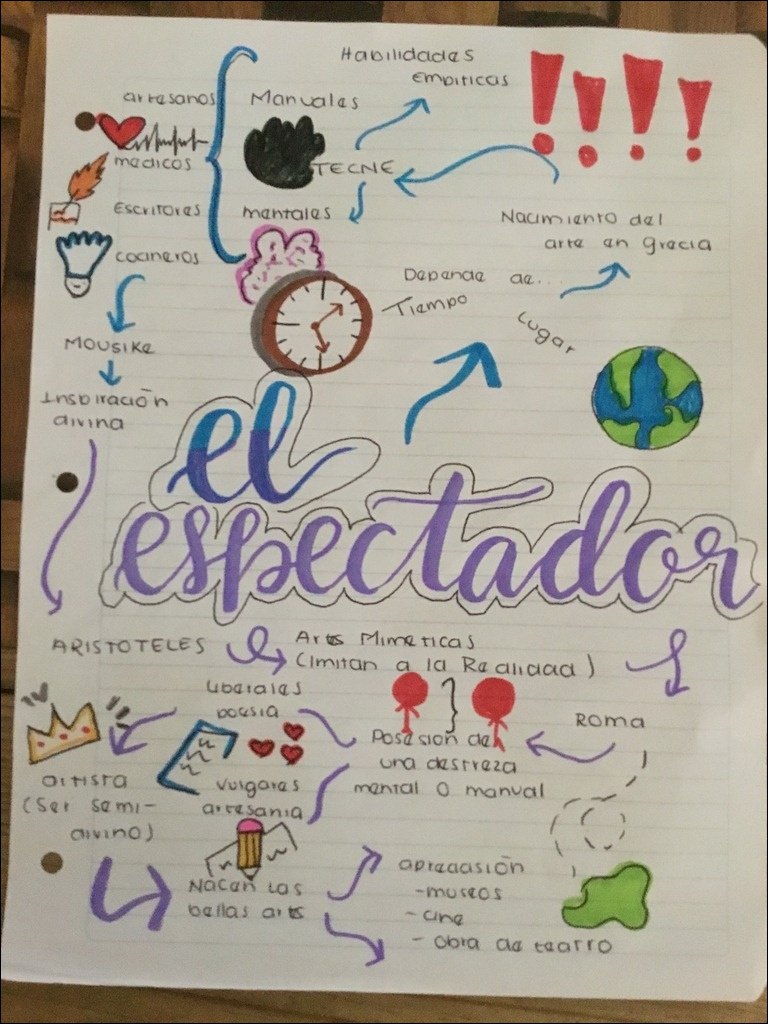 Habilidades
Empiricas
artesanos
Manuales
medicos
TECNE
Escritores
mentales
cocineros
Nacimiento del
arte en grecia
Depende de...
Tiempo
Lugar
MOUSIKE
Inspiración
divina
el
espectador
ARISTOTELES
Artes Mimeticas
(imitan a la Realidad)
Liberales
poesia
ROMA
Posesion de
una destreza
mental o manual
vulgares
artesania
artista
(ser semi-
divino)
Nacen las
bellas arts
apreciasión
-museos
- cine
- obra de teatro